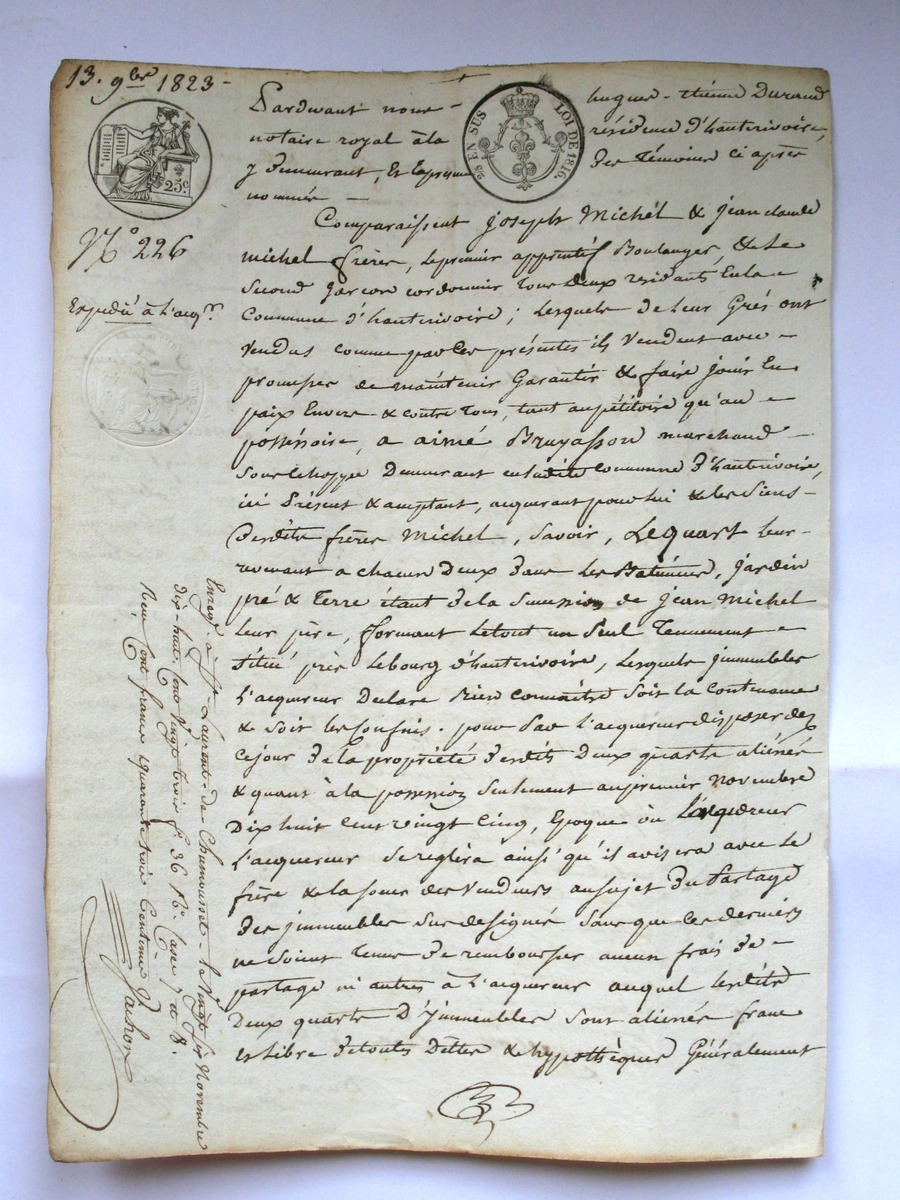 13. 9bre 1823 -
Pardevant nous - hugues - étienne Durand
notaire royal à la résidence d'hauterivoire,
y Demeurant, Et En présence Des Témoins ci après
nommés -
25 c.
2/5 EN SUS
LOI DE 1816.
N° 226
Expédié à l'acqr.
Comparaissent joseph Michel & jean claude
michel frères, le premier apprentif Boulanger, & le
Second garcon cordonnier Tous Deux residants En la
Commune d'hauterivoire; Lesquels de leur Grés ont
Vendus comme par Ces présentes ils Vendent avec
promesses de maintenir Garantir & faire jouir En
paix Envers & contre Tous, tant au pétitoire qu'au
possessoire, a aimé Bruyasson marchand
Demeurant en ladite Commune d'hauterivoire,
ici Présent & acceptant, acquerant pour lui & les Siens
Desdits frères Michel, Savoir, Le quart leur
revenant a chacun Deux dans les Batiments, jardin
pré & Terre étant de la Succession de jean Michel
leur père, formant le tout un Seul Tennement
Situé près Le bourg d'hauterivoire, Lesquels immeubles
l'acquereur Declare bien connaitre soit la Contenance
& soit les Confins. pour par l'acquereur disposer dez
ce jour de la propriété desdits Deux quarts aliénés
& quant à la possession Seulement au premier novembre
Dix huit Cent vingt Cinq, Epoque où
l'acquereur Se reglera ainsi qu'il avisera avec le
frère & la soeur des Vendeurs au sujet Du Partage
Des immeubles Sus designés Sans que les derniers
ne Soient Tenus De rembourser aucun frais de
partage ni autres à l'acquereur auquel lesdits
Deux quarts D'immeubles Sont aliénés franc
et libre De toutes Dettes & hypothèques Généralement
Enregé à St Laurent de Chamousset le Vingt Six Novembre
dix-huit cent Vingt trois fo 36 Ro Cases 7 et 8.
Reçu cent francs quarante trois Centimes